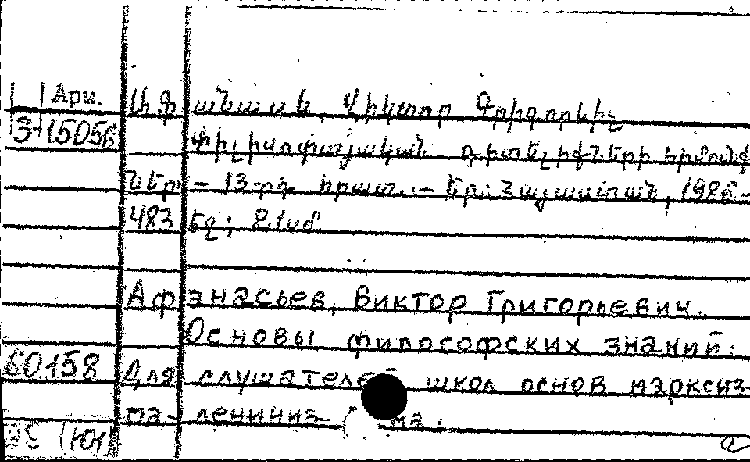 Арм. Աֆանասև, Վիկտոր Գրիգորևիչ
3-15056 Փիլիսոփայական գիտելիքների հիմունք
ներ. - 13-րդ հրատ. - Եր.: Հայաստան, 1986.-
483 էջ; 21սմ
Афанасьев, Виктор Григорьевич.
Основы философских знаний:
60158 Для слушателей школ основ марксиз
ма-лениниз ма.